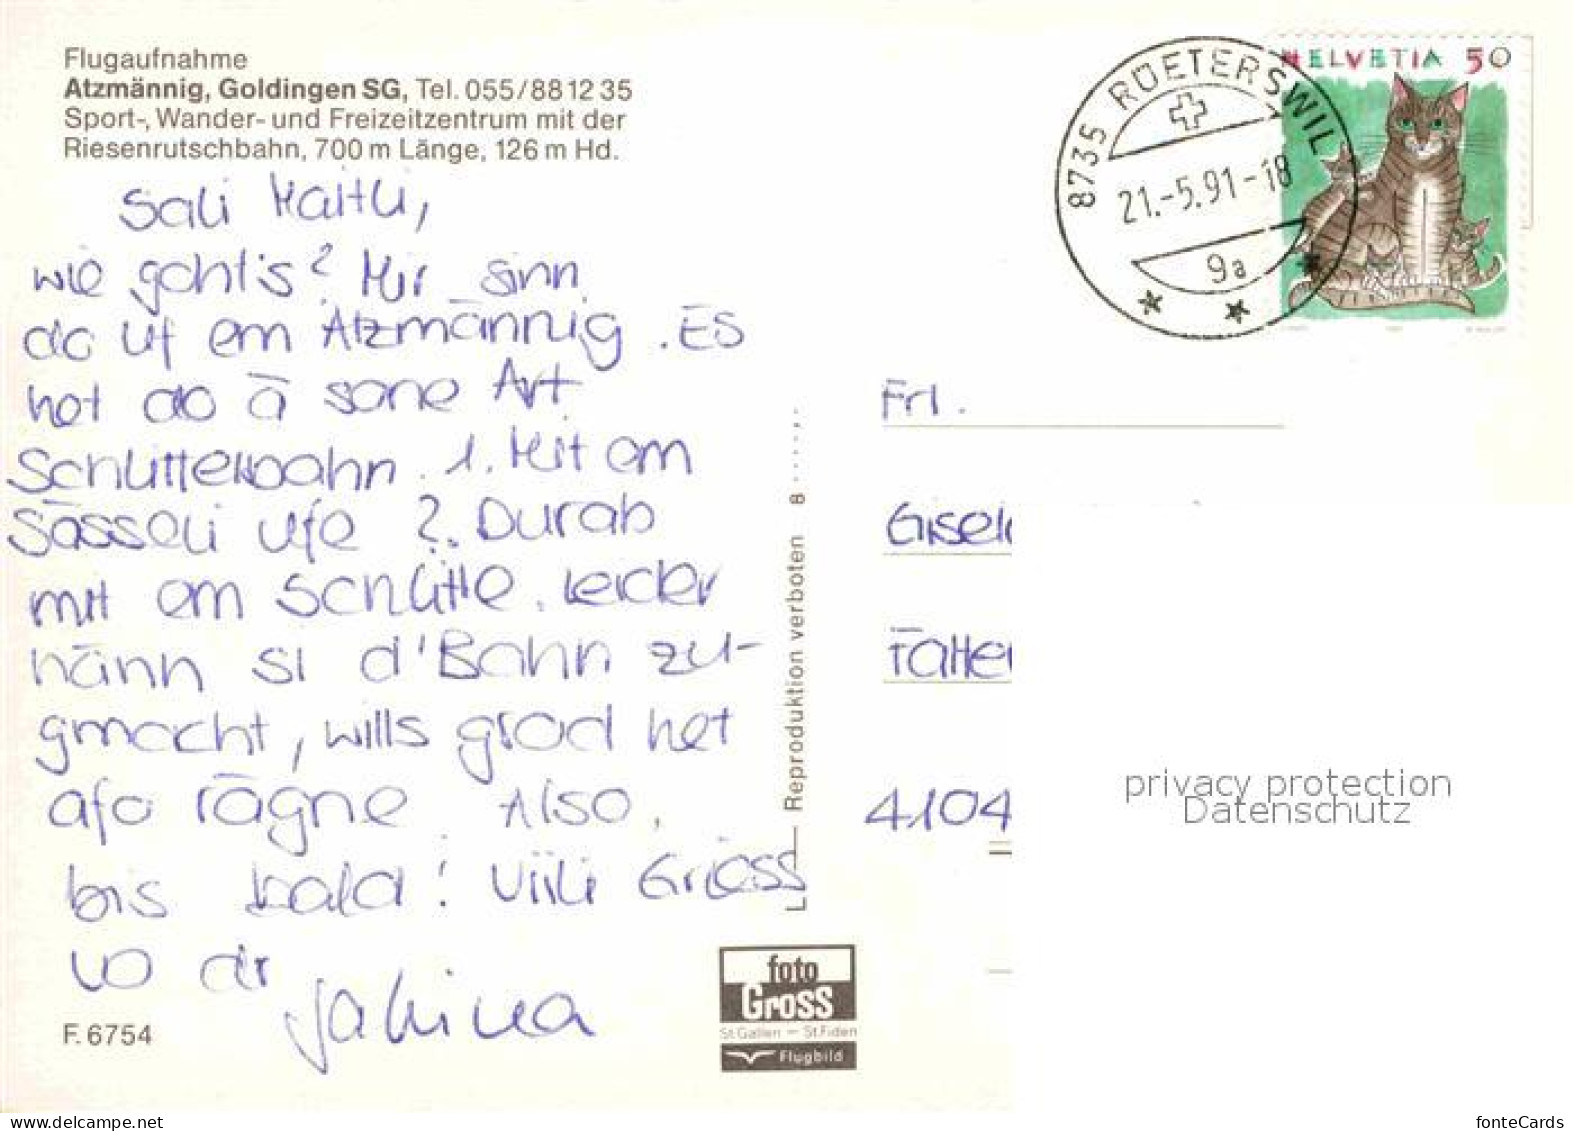 Flugaufnahme
Atzmännig, Goldingen SG, Tel. 055/88 12 35
Sport-, Wander- und Freizeitzentrum mit der
Riesenrutschbahn, 700 m Länge, 126 m Hd.
HELVETIA 50
8735 RÜETERSWIL
21.-5.91-18
9a
Sali Maitli,
wie gohts? Mir sinn
do uf em Atzmännig. Es
het do ä sone Art
Schlittelbahn. 1. Mit em
Sässeli ufe 2. Durab
mit em Schlitte. Leider
hänn si d'Bahn zu-
gmacht, wills grad het
afo rägne. Also,
bis bald! Viili Grüess
vo dr
Frl.
Gisel
Fätte
4104
L Reproduktion verboten B
privacy protection
Datenschutz
foto
Gross
St.Gallen – St.Fiden
Flugbild
F. 6754
fonteCards